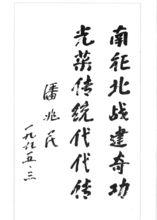 南征北战建奇功
光荣传统代代传
潘兆民
一九九五.三